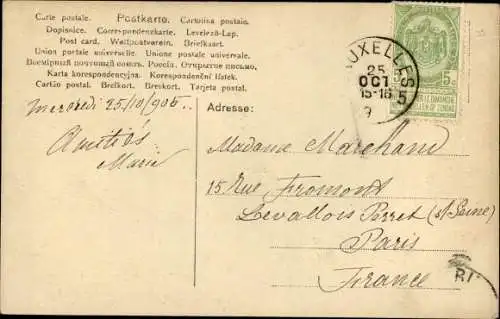 Carte postale. Postkarte. Cartolina postale.
Dopisnice. Correspondenzkarte. Levelező-Lap.
Post card. Weltpostverein. Briefkaart.
Union postale universelle. Unione postale universale.
Всемірный почтовый союзъ. Россія. Открытое письмо.
Karta korespondencyjna. Korespondenční lístek.
Cartão postal. Brefkort. Brevkort. Tarjeta postal.
UXELLES
25
OCT
15-16
5
5 C
Mercredi 25/10/906.
Adresse:
Amitiés
Marie
Madame Marchand
15 Rue Fromont
Levallois Perret (st Seine)
Paris
France